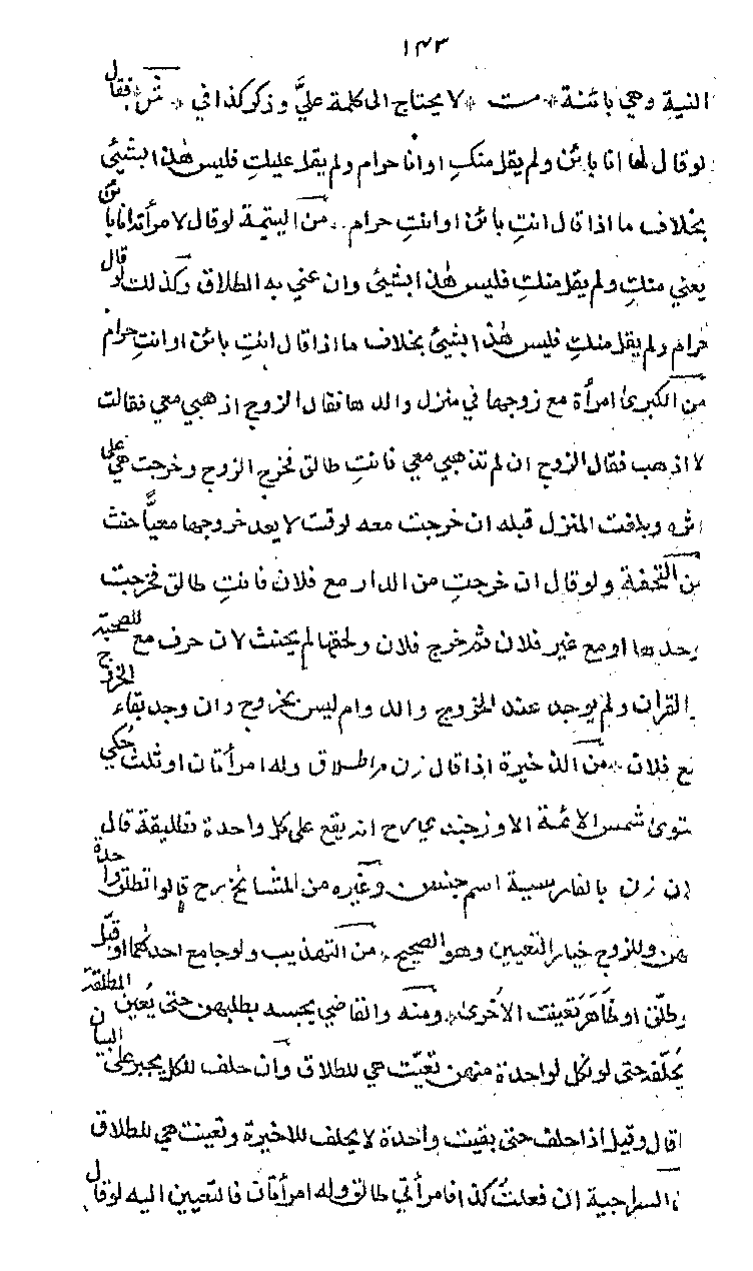 ١٤٣
النية وهي بائنة * مت * لا يحتاج الى كلمة عليَّ وذكر كذا في * شر * فقال
لو قال لها انا بائن ولم يقل منكِ او انا حرام ولم يقل عليكِ فليس هذا بشيئ
بخلاف ما اذا قال انتِ بائن او انتِ حرام * من اليتيمة لو قال لامرأته انا بائن
يعني منكِ ولم يقل منكِ فليس هذا بشيئ وان عني به الطلاق وكذلك لو قال
حرام ولم يقل منكِ فليس هذا بشيئ بخلاف ما اذا قال انتِ بائن او انتِ حرام
من الكبرى امرأة مع زوجها في منزل والدها فقال الزوج اذهبي معي فقالت
لا اذهب فقال الزوج ان لم تذهبي معي فانتِ طالق فخرج الزوج وخرجت هي على
اثره وبلغت المنزل قبله ان خرجت معه لوقت لا يعد خروجها معيًّا حنث
من التحفة ولو قال ان خرجتِ من الدار مع فلان فانتِ طالق فخرجت
وحدها او مع غير فلان ثم خرج فلان ولحقها لم يحنث لان حرف مع للصحبة
والقران ولم يوجد عند الخروج والدوام ليس بخروج وان وجد بقاء الخروج
مع فلان * من الذخيرة اذا قال زن مرا طلاق وله امرأتان او ثلث حُكي
فتوى شمس الائمة الاوزجندي رح انه يقع على كل واحدة تطليقة قال
لان زن بالفارسية اسم جنس وغيره من المشائخ رح قالوا تطلق واحدة
منهن وللزوج خيار التعيين وهو الصحيح * من التهذيب ولو جامع احدهما او قبّل
وطلّق او ظاهَرَ تعينت الأخرى * ومنه والقاضي يحبسه بطلبهن حتى يُعين المطلقة
يُحلّفه حتى لو نكل لواحدة منهن تعيّنت هي للطلاق وان حلف للكل يجبر على البيان
قال وقيل اذا حلف حتى بقيت واحدة لا يحلف للاخيرة وتعينت هي للطلاق
السراجية ان فعلتُ كذا فامرأتي طالق وله امرأتان فالتعيين اليه لو قال